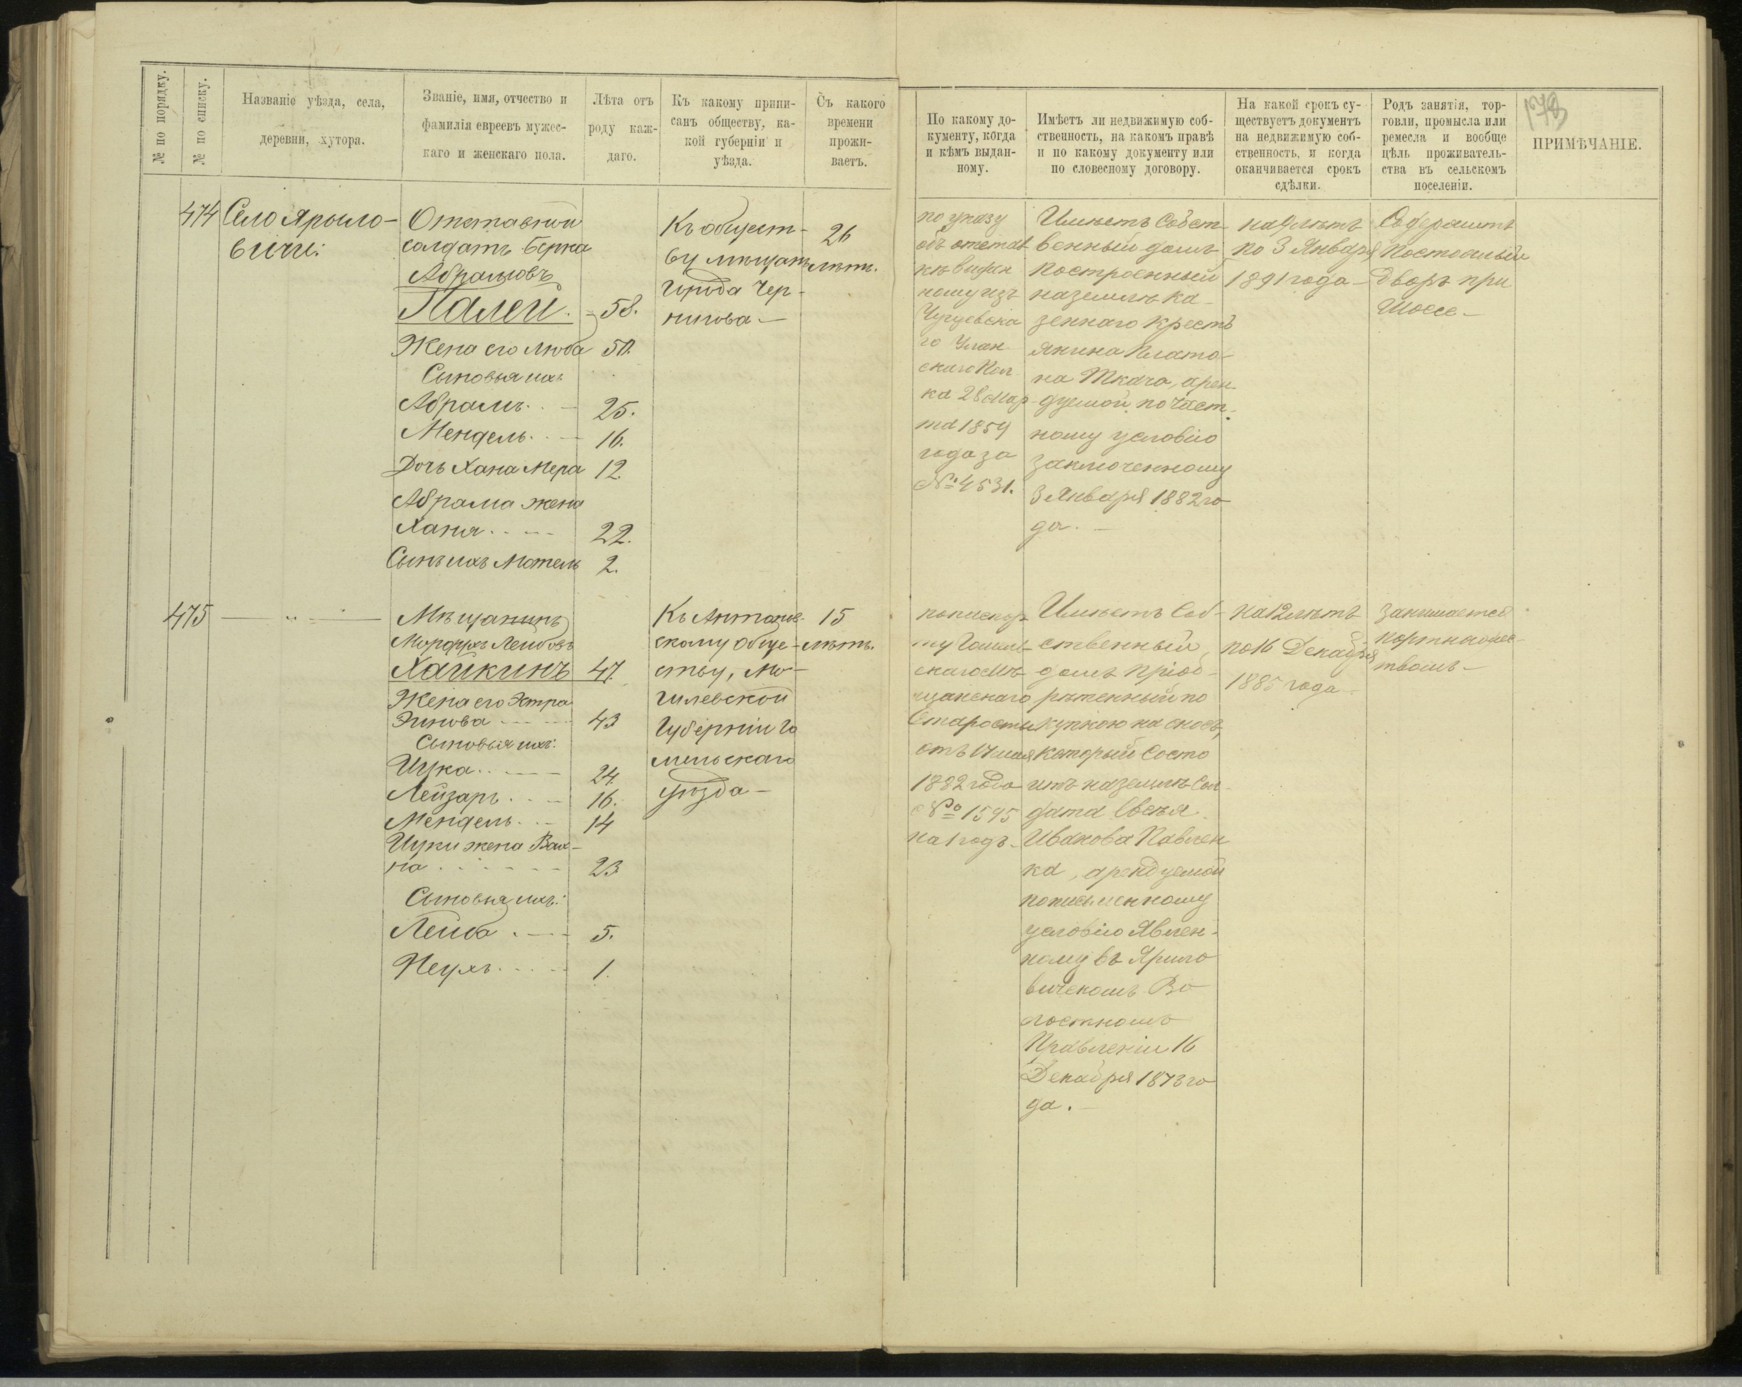 № по порядку.
№ по списку.
Названіе уѣзда, села,
деревни, хутора.
Званіе, имя, отчество и
фамилія евреевъ мужес-
каго и женскаго пола.
Лѣта отъ
роду каж-
даго.
Къ какому припи-
санъ обществу, ка-
кой губерніи и
уѣзда.
Съ какого
времени
прожи-
ваетъ.
По какому до-
кументу, когда
и кѣмъ выдан-
ному.
Имѣетъ ли недвижимую соб-
ственность, на какомъ правѣ
и по какому документу или
по словесному договору.
На какой срокъ су-
ществуетъ документъ
на недвижимую соб-
ственность, и когда
оканчивается срокъ
сдѣлки.
Родъ занятія, тор-
говли, промысла или
ремесла и вообще
цѣль проживатель-
ства въ сельскомъ
поселеніи.
ПРИМѢЧАНІЕ.
474
Село Ярыло-
вичи:
Отставной
солдатъ Берка
Абрамовъ
Палей. - 58.
Жена его Люба 50.
Сыновья ихъ
Абрамъ. . - 25.
Мендель. . - 16.
Дочь Хана Мера 12
Абрама жена
Хана . . - - 22.
Сынъ ихъ Мотель 2.
Къ общест-
ву мѣщанъ
города Чер-
нигова -
26
лѣтъ.
по указу
объ отстав
кѣ выдан
ному изъ
Чугуевска
го Улан
скаго Пол
ка 28 Мар
та 1859
года за
№ 4531.
Имѣетъ Собст
венный домъ
построенный
на землѣ ка-
зеннаго кресть
янина Плато-
на Ткача, арен
дуемой, по част-
ному условію
заключенному
3 Января 1882 го
да. -
на 9 лѣтъ
по 3 Января
1891 года -
Содержитъ
Постоялый
дворъ при
Шоссе -
475
- " -
Мѣщанинъ
Мордухъ Лейбовъ
Хайкинъ 47
Жена его Эстра
- - - 43
Сыновья ихъ:
Цука. . - - 24
Лейзаръ . . - 16.
Мендель. . - 14
Цуки жена Вах-
на . . . - - 23
Сыновья ихъ:
Лейба . - - 5.
Неухъ . . - - 1.
Къ
скому обще-
ству, Мо-
гилевской
Губерніи Го
мельскаго
уѣзда -
15
лѣтъ.
Гомель
скаго Мѣ
щанскаго
Старосты
отъ 17 мая
1882 года
№ 1595
на 1 годъ -
Имѣетъ Соб-
ственный
домъ пріоб-
рѣтенный по
купкою на сносъ,
который состо
итъ на землѣ Сол
дата
Иванова Павлен
ка, арендуемой
по письменному
условію Явлен-
ному въ Ярило
вичскомъ Во
лостномъ
Правленіи 16
Декабря 1873 го
да. -
на 12 лѣтъ
по 16 Декабря
1885 года -
Занимается
портняжес-
твомъ -